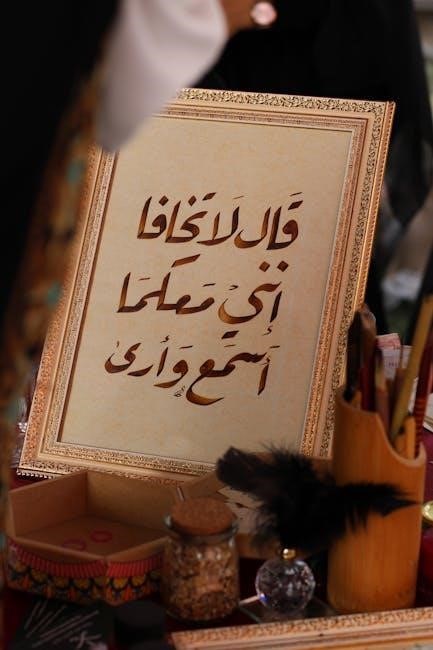 قَال لَا تَخافا
إنني مَعكمَا
أَسمَع وَأرىٰ